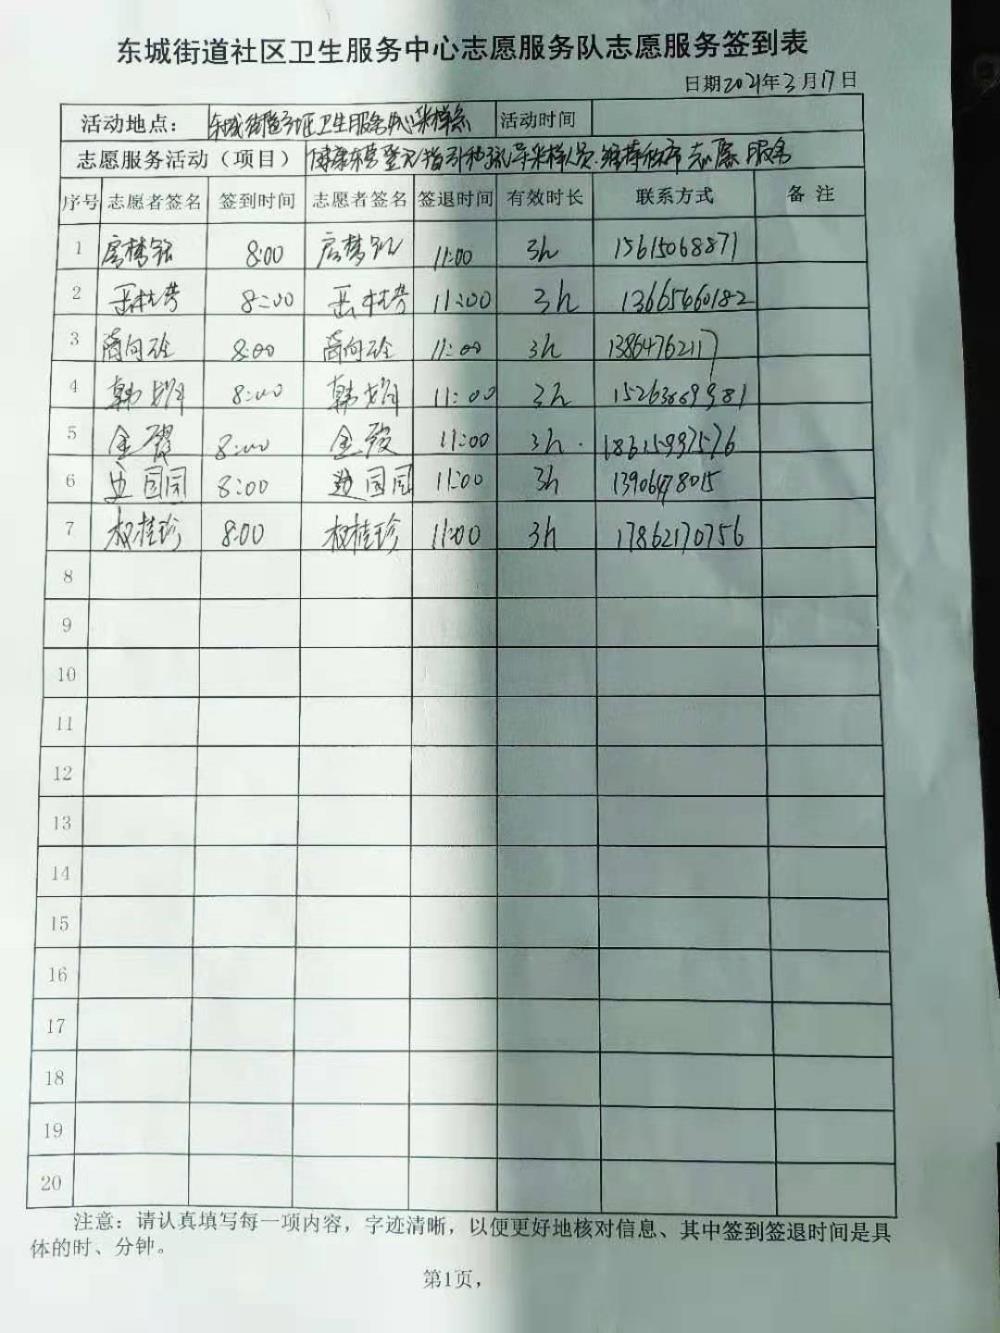 东城街道社区卫生服务中心志愿服务队志愿服务签到表
日期2021年3月17日
活动地点： 东城街道社区卫生服务中心采样点 活动时间
志愿服务活动（项目） 健康东营登记/指引和疏导采样人员.维持秩序志愿服务
序号 志愿者签名 签到时间 志愿者签名 签退时间 有效时长 联系方式 备注
1 房梦钇 8:00 房梦钇 11:00 3h 15615068871
2 岳桂芳 8:00 岳桂芳 11:00 3h 13665460182
3 8:00 11:00 3h 13864762117
4 韩 8:00 韩 11:00 3h
5 金 8:00 金 11:00 3h. 18615997576
6 边园园 8:00 边园园 11:00 3h
7 权桂珍 8:00 权桂珍 11:00 3h 17862170756
8
9
10
11
12
13
14
15
16
17
18
19
20
注意：请认真填写每一项内容，字迹清晰，以便更好地核对信息、其中签到签退时间是具
体的时、分钟。
第1页，